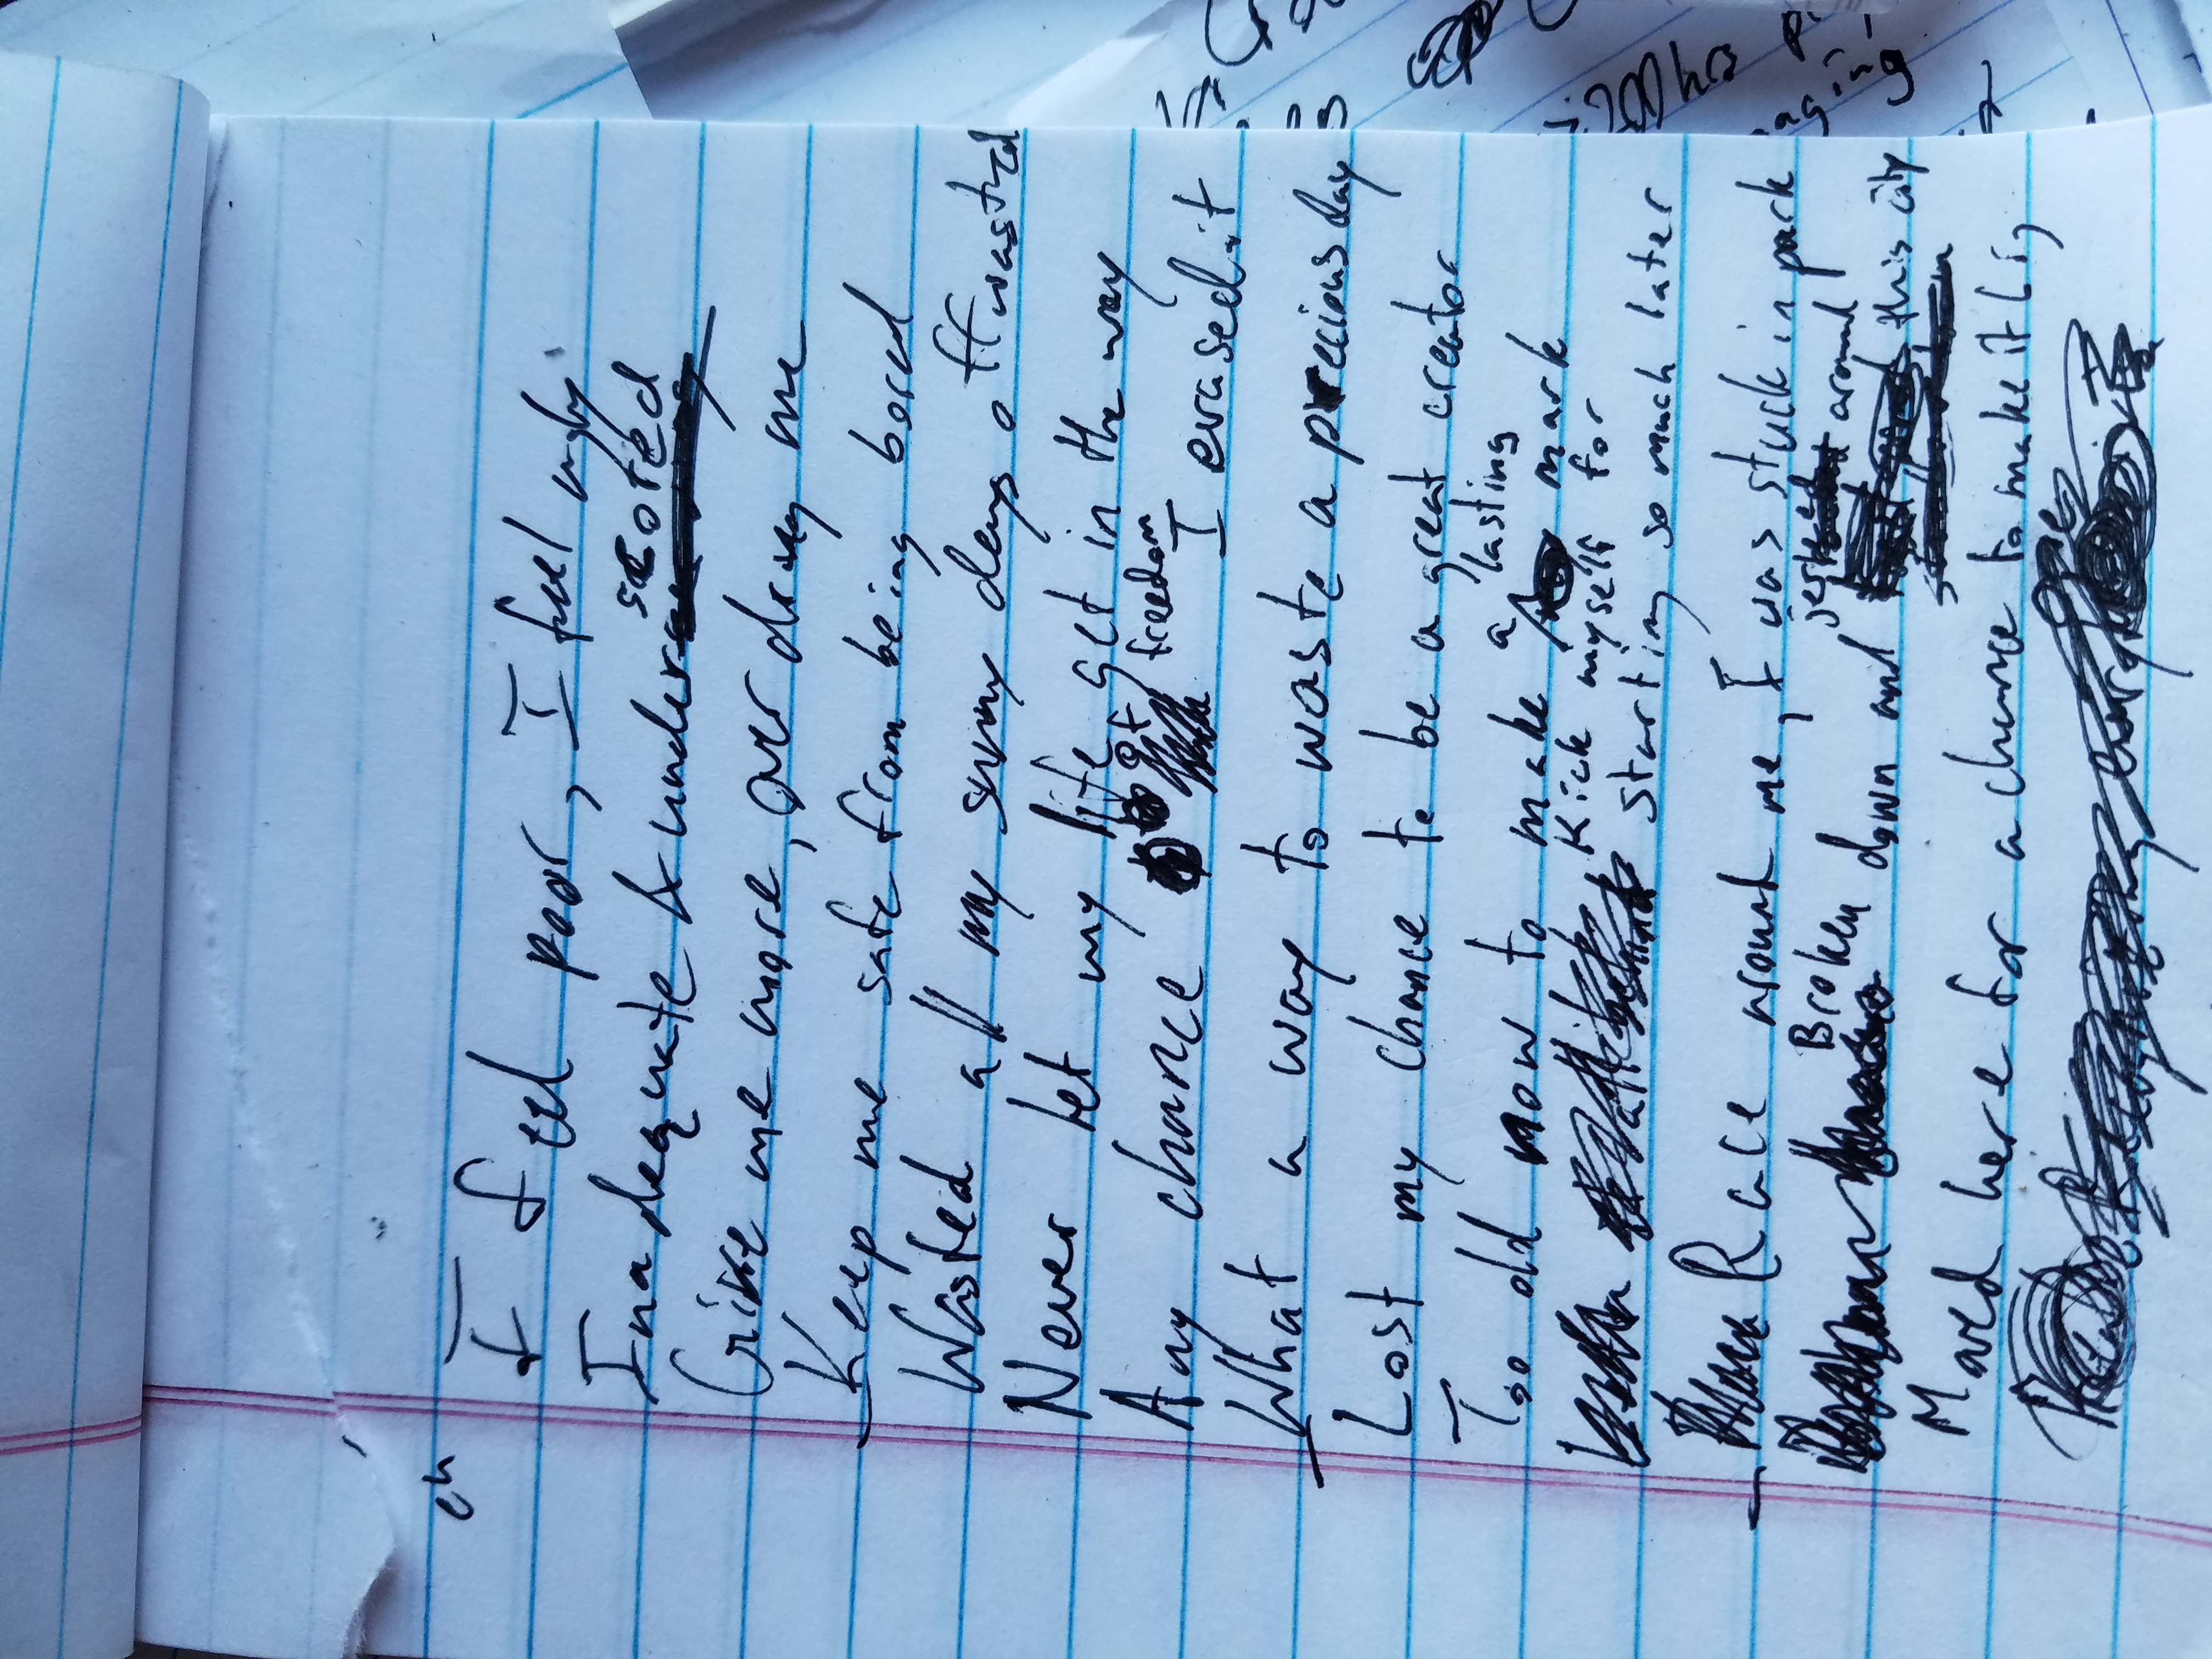 ch
I feel poor, I feel ugly
Inadequate & underscored
Give me more, over drug me
Keep me safe from being bored
Wasted all my sunny days off wasted
Never let my life get in the way
Any chance of freedom I erased it
What a way to waste a precious day
Lost my chance to be a great creator
Too old now to make a lasting mark
Kick myself for
starting so much later
Race around me, I was stuck in park
Broken down and jerked around this city
Moved here for a chance to make it big